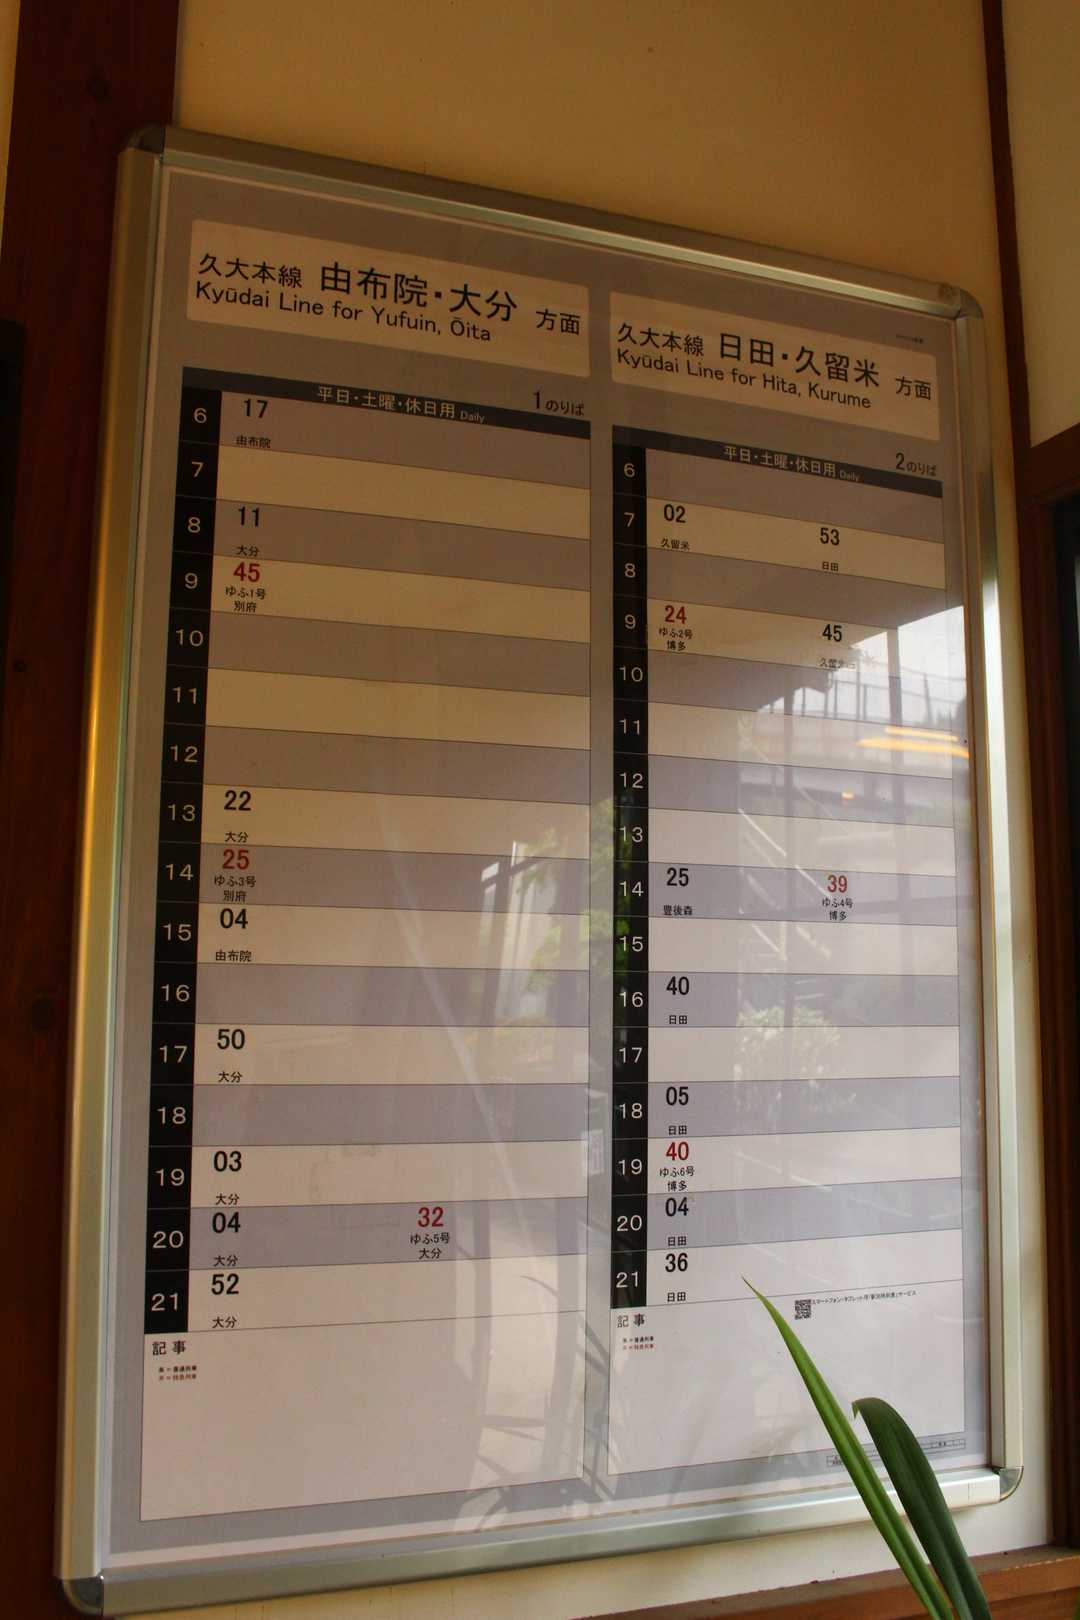 久大本線 由布院・大分 方面
Kyūdai Line for Yufuin, Ōita
平日・土曜・休日用 Daily 1のりば
6 17
由布院
7
8 11
大分
9 45
ゆふ1号
別府
10
11
12
13 22
大分
14 25
ゆふ3号
別府
15 04
由布院
16
17 50
大分
18
19 03
大分
20 04 32
ゆふ5号
大分 大分
21 52
大分
記事
黒=普通列車
赤=特急列車
久大本線 日田・久留米 方面
Kyūdai Line for Hita, Kurume
平日・土曜・休日用 Daily 2のりば
6
7 02 53
久留米 日田
8
9 24 45
ゆふ2号
博多 久留米
10
11
12
13
14 25 39
ゆふ4号
豊後森 博多
15
16 40
日田
17
18 05
日田
19 40
ゆふ6号
博多
20 04
日田
21 36
日田
記事
黒=普通列車
赤=特急列車
スマートフォン・タブレット用「駅別時刻表」サービス